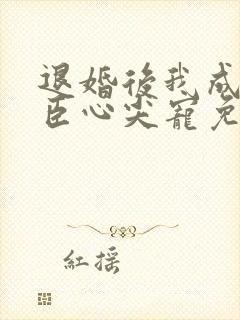 退婚後我成
臣心尖寵免
紅摇